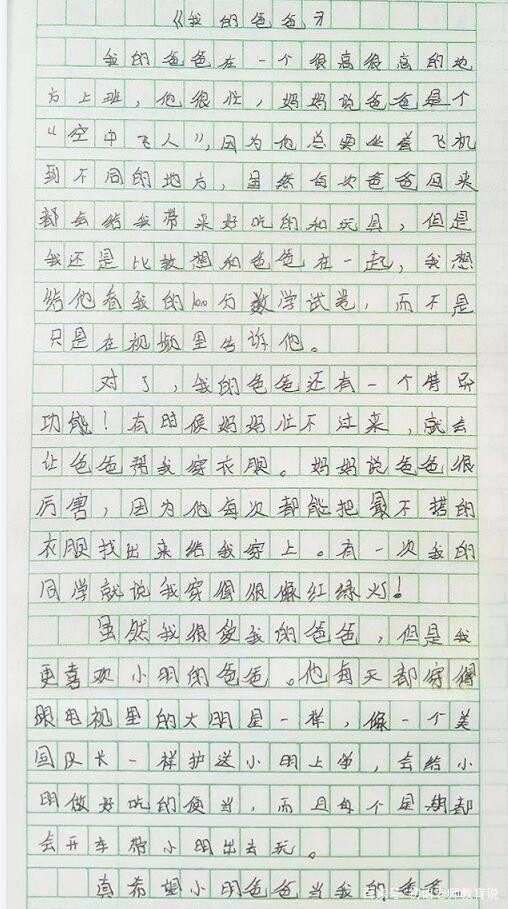 《我的爸爸》
我的爸爸在一个很高很高的地
方上班，他很忙，妈妈说爸爸是个
“空中飞人”，因为他总要坐着飞机
到不同的地方，虽然每次爸爸回来
都会给我带来好吃的和玩具，但是
我还是比较想和爸爸在一起，我想
给他看我的100分数学试卷，而不是
只是在视频里告诉他。
对了，我的爸爸还有一个特异
功能！有时候妈妈忙不过来，就会
让爸爸帮我穿衣服。妈妈说爸爸很
厉害，因为他每次都能把最不搭的
衣服找出来给我穿上。有一次我的
同学就说我穿得很像红绿灯！
虽然我很爱我的爸爸，但是我
更喜欢小明的爸爸。他每天都穿得
跟电视里的大明星一样，像一个美
国队长一样护送小明上学，会给小
明做好吃的便当，而且每个星期都
会开车带小明出去玩。
真希望小明爸爸当我的爸爸
师教育说